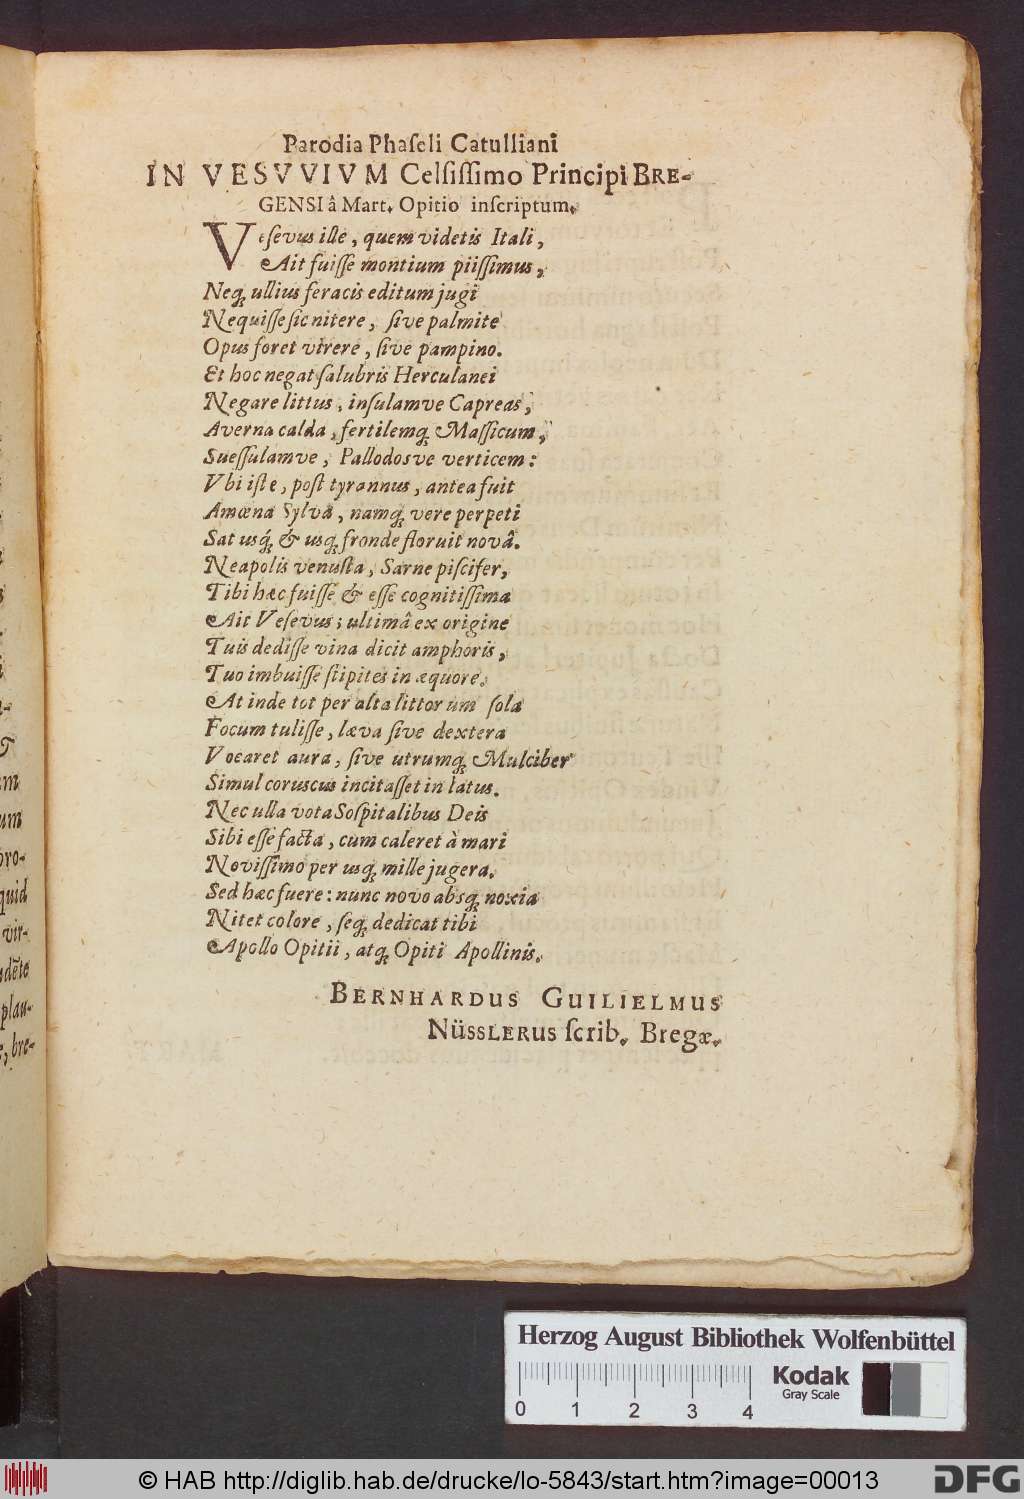 Parodia Phaſeli Catulliani
IN VESVVIVM Celſiſſimo Principi BRE-
GENSI â Mart. Opitio inſcriptum.
Veſevus ille, quem videtis Itali,
Ait fuiſſe montium piiſſimus,
Neq; ullius feracis editum jugi
Nequiſſe ſic nitere, ſive palmite
Opus foret virere, ſive pampino.
Et hoc negat ſalubris Herculanei
Negare littus, inſulamve Capreas,
Averna calda, fertilemq; Maſſicum,
Sueſſulamve, Pallodosve verticem:
Vbi iſte, poſt tyrannus, antea fuit
Amœna Sylva, namq; vere perpeti
Sat usq́; & usq; fronde floruit novâ.
Neapolis venuſta, Sarne piſcifer,
Tibi hæc fuiſſe & eſſe cognitiſſima
Ait Veſevus; ultimâ ex origine
Tuis dediſſe vina dicit amphoris,
Tuo imbuiſſe ſtipites in æquore.
At inde tot per alta littorum ſola
Focum tuliſſe, læva ſive dextera
Vocaret aura, ſive utrumq; Mulciber
Simul coruscus incitaſſet in latus.
Nec ulla vota Soſpitalibus Deis
Sibi eſſe facta, cum caleret à mari
Noviſſimo per usq; mille jugera.
Sed hæc fuere: nunc novo absq; noxia
Nitet colore, ſeq; dedicat tibi
Apollo Opitii, atq; Opiti Apollinis.
BERNHARDUS GUILIELMUS
NÜSSLERUS ſcrib. Bregæ.
T
um
pro-
quid
vir-
plau-
bre-
Herzog August Bibliothek Wolfenbüttel
Kodak
Gray Scale
0 1 2 3 4
© HAB http://diglib.hab.de/drucke/lo-5843/start.htm?image=00013
DFG